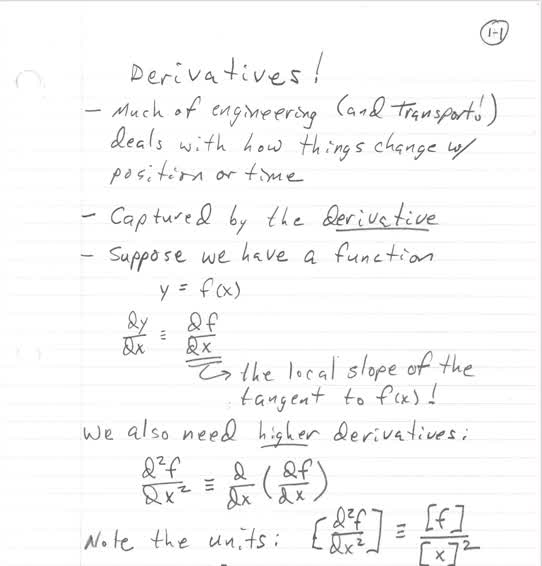 1-1
Derivatives!
- Much of engineering (and Transport!)
deals with how things change w/
position or time
- Captured by the derivative
- Suppose we have a function
y = f(x)
dy/dx ≡ df/dx
↳ the local slope of the
tangent to f(x)!
We also need higher derivatives:
d²f/dx² ≡ d/dx (df/dx)
Note the units: [d²f/dx²] ≡ [f]/[x]²